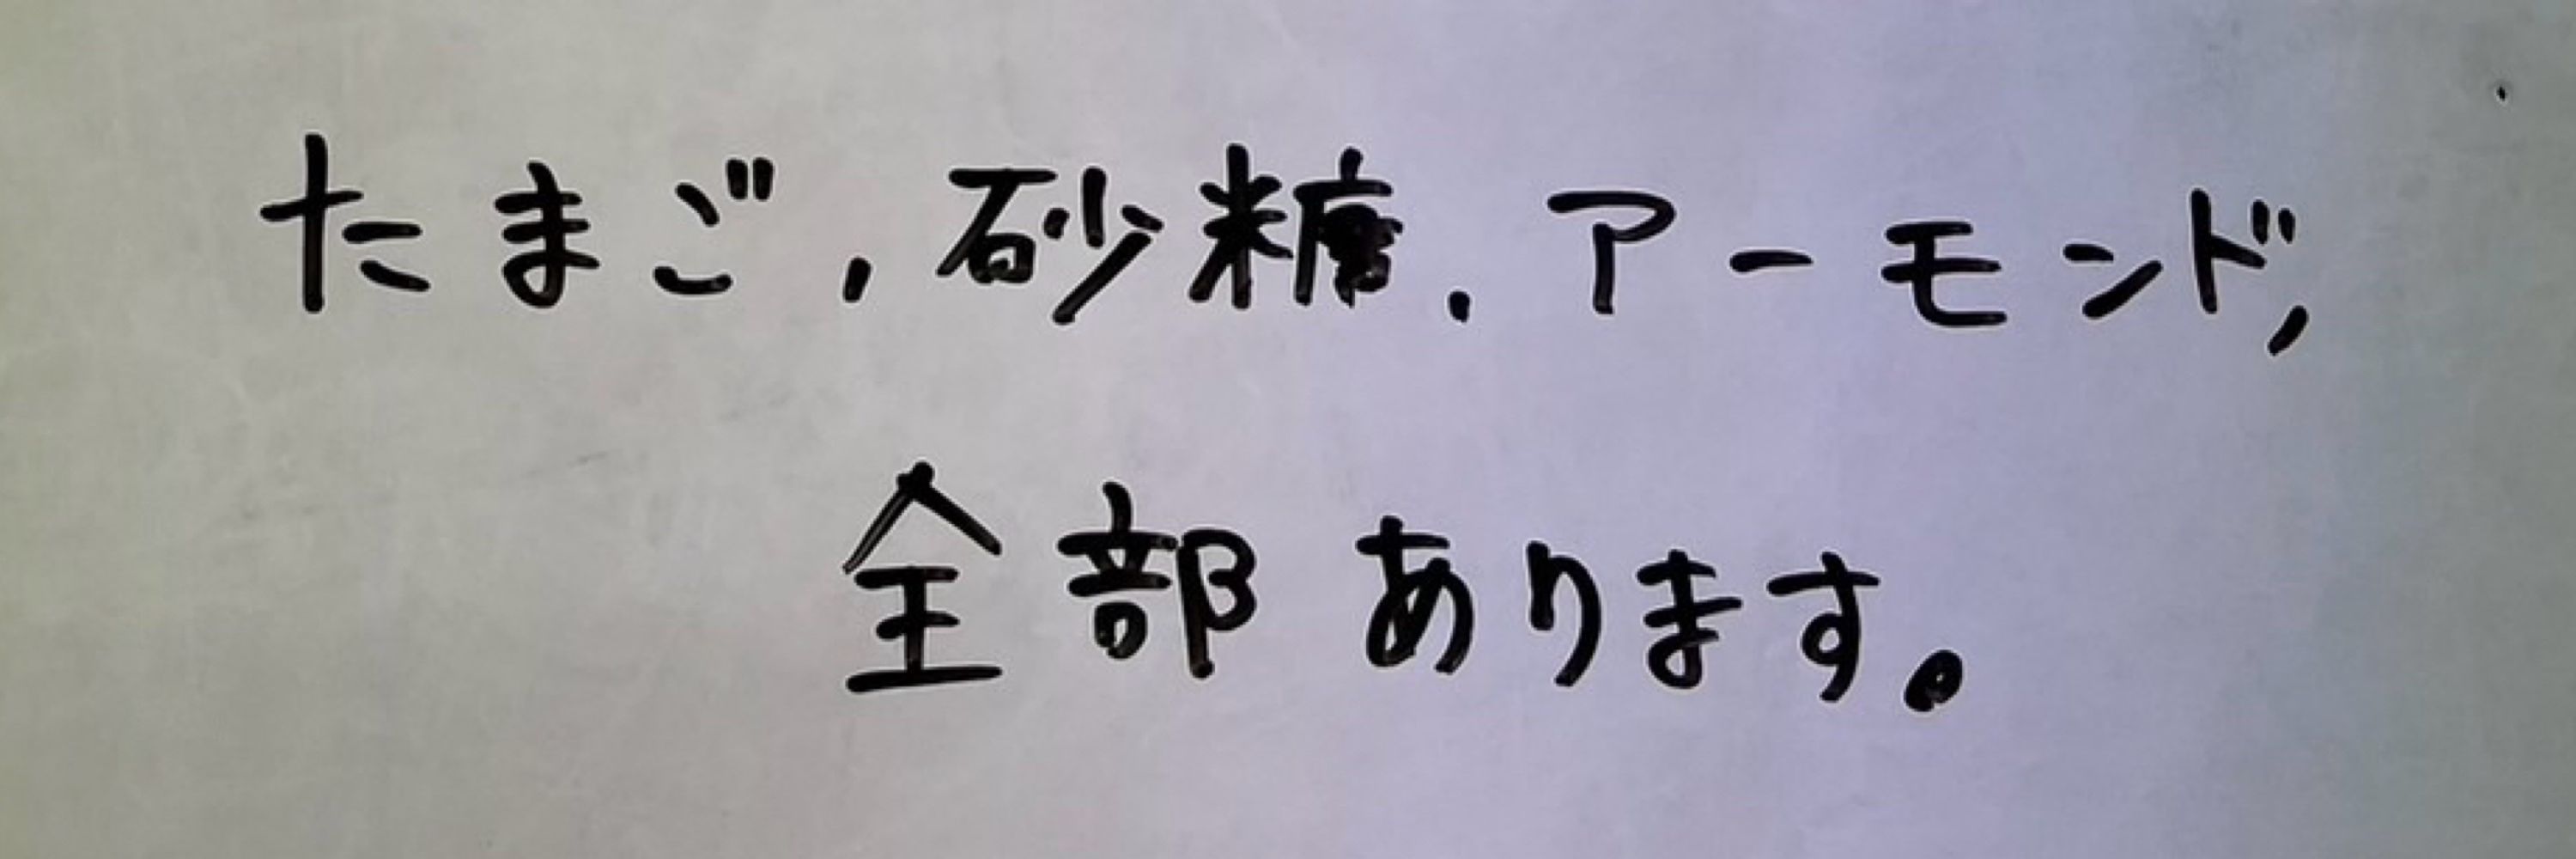 たまご、砂糖、アーモンド、
全部あります。